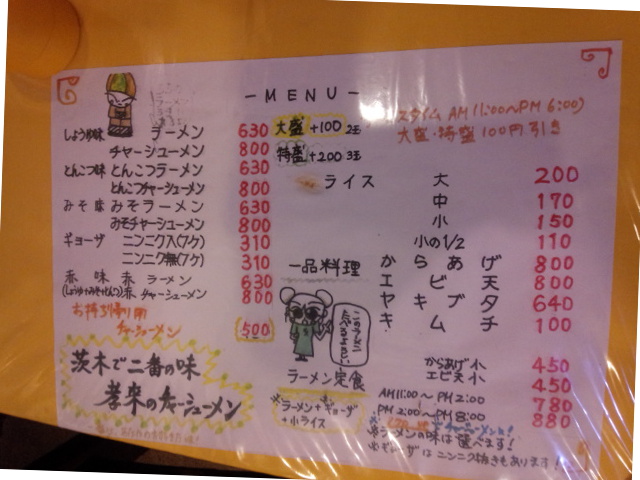 －MENU－
しょうゆ味 ラーメン 630
チャーシューメン 800
とんこつ味 とんこつラーメン 630
とんこつチャーシューメン 800
みそ味 みそラーメン 630
みそチャーシューメン 800
ギョーザ ニンニク入(7ケ) 310
ニンニク無(7ケ) 310
赤味 赤ラーメン 630
(しょうゆ+みそ+とんこつ) 赤チャーシューメン 800
お持ち帰り用
チャーシューメン 500
茨木で二番の味
孝来のチャーシューメン
大盛 +100 2玉
特盛 +200 3玉
スタイム AM11:00〜PM6:00)
大盛・特盛100円引き
ライス 大 200
中 170
小 150
小の1/2 110
一品料理 からあげ 800
エビ天 800
ヤキブタ 640
キムチ 100
からあげ小 450
エビ天小 450
ラーメン定食
AM11:00〜PM2:00 780
PM2:00〜PM8:00 880
※ラーメン+ギョーザ
+小ライス
※ラーメンの味は選べます!
※ギョーザはニンニク抜きもあります!